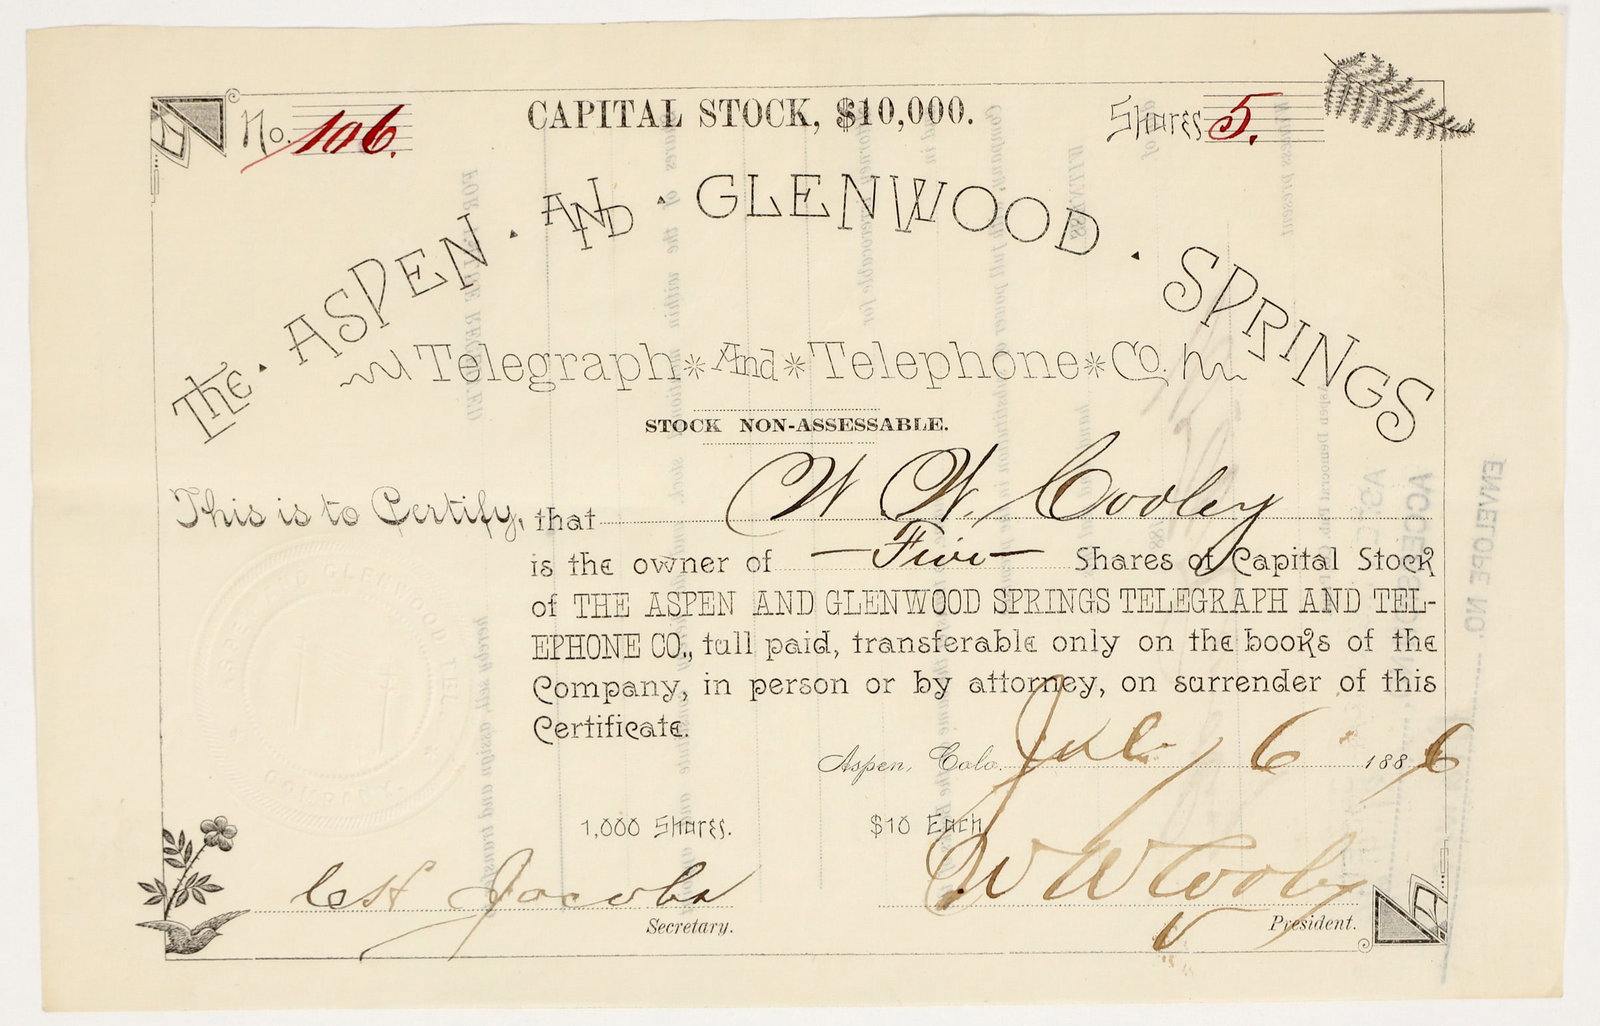 No. 106.
CAPITAL STOCK, $10,000.
Shares 5.
The · ASPEN · AND · GLENWOOD · SPRINGS
Telegraph * And * Telephone * Co.
STOCK NON-ASSESSABLE.
This is to Certify, that W. W. Cooley
is the owner of — Five — Shares of Capital Stock
of THE ASPEN AND GLENWOOD SPRINGS TELEGRAPH AND TEL-
EPHONE CO., full paid, transferable only on the books of the
Company, in person or by attorney, on surrender of this
Certificate.
Aspen, Colo. July 6 1886
1,000 Shares. $10 Each
Jacobs W W Cooley
Secretary. President.
ENVELOPE NO.